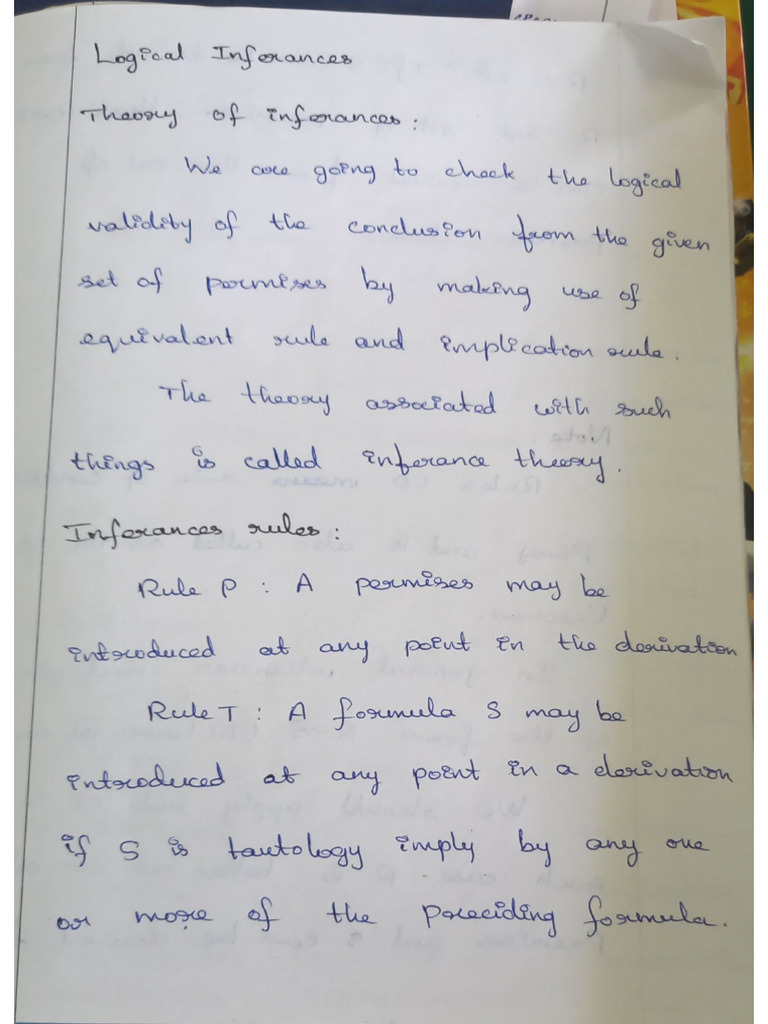 Logical Inferances
Theory of inferances :
We are going to check the logical
validity of the conclusion from the given
set of permises by making use of
equivalent rule and implication rule.
The theory associated with such
things is called inferance theory.
Inferances rules :
Rule P : A permises may be
introduced at any point in the derivation
Rule T : A formula S may be
introduced at any point in a derivation
if S is tautology imply by any one
or more of the preciding formula.